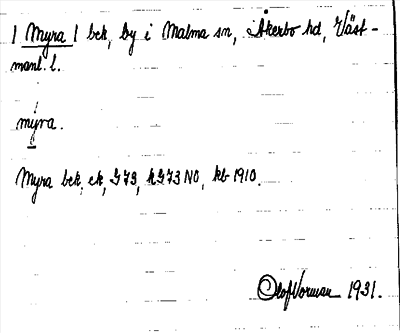 / Myra / bek, by i Malma sn, Åkerbo hd, Väst-
manl. l.
myra.
Myra bek, ek, G73, kG73 NO, kb 1910.
Olof Norman 1931.